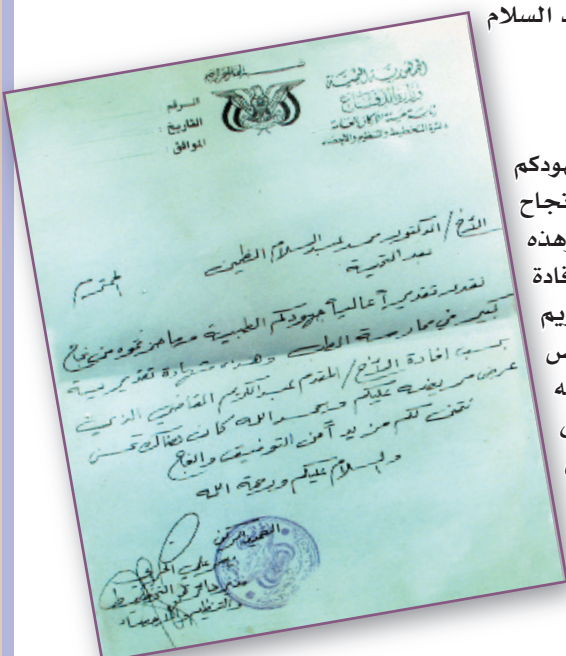 السلام
بسم الله الرحمن الرحيم
الجمهورية اليمنية
وزارة الدفاع
رئاسة هيئة الأركان العامة
دائرة التخطيط والتنظيم والإحصاء
الرقم :
التاريخ :
الموافق :
الأخ / الدكتور محمد عبدالسلام المحترم
بعد التحية
نقدر تقديراً عالياً جهودكم الطبية نجاح
كبير في ممارسة الطب وهذه شهادة تقديرية
بحسب افادة الأخ / المقدم عبدالكريم القاضي الذي
عرض مرضه عليكم وبحمد الله كان هناك تحسن
نتمنى لكم مزيد آمن التوفيق والنجاح
والسلام عليكم ورحمة الله
العميد الركن
علي
مدير دائرة التخطيط
والتنظيم والاحصاء
نجاح
وهذه